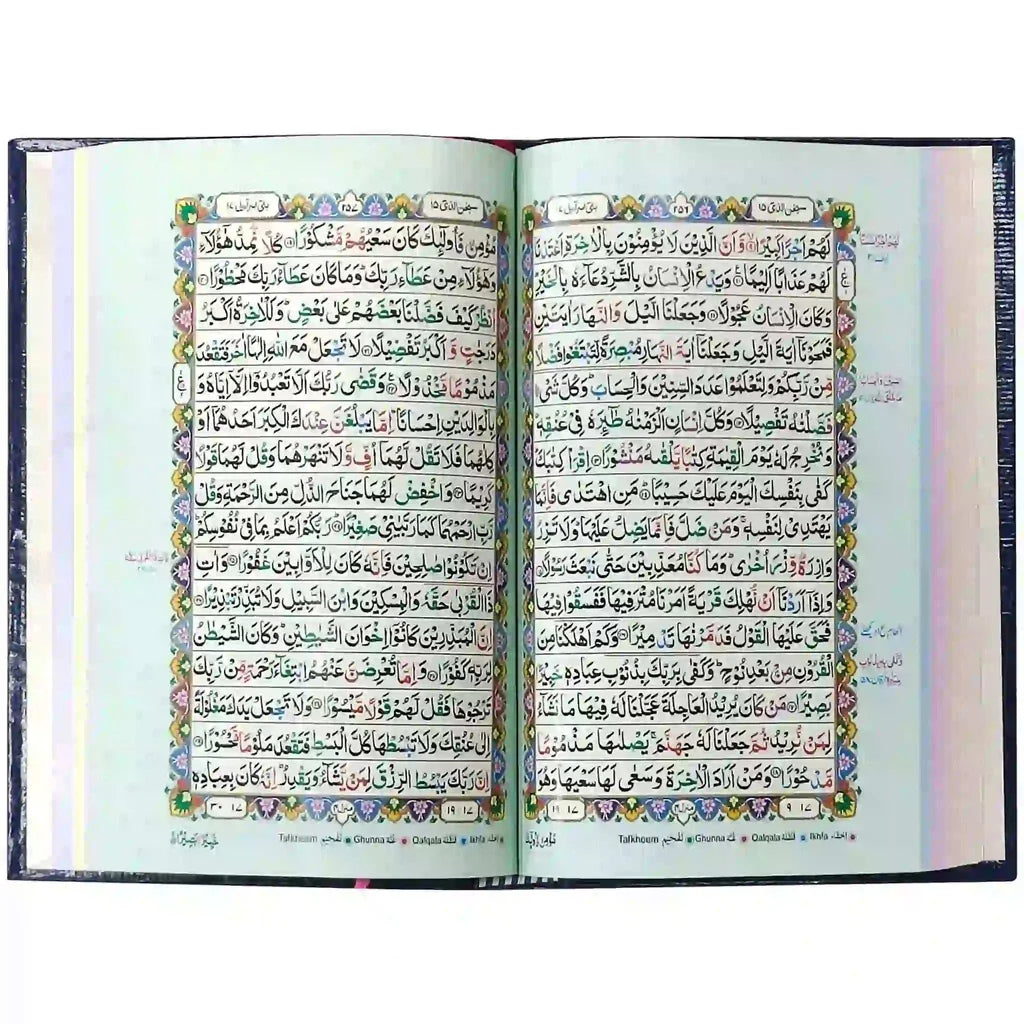 سبحٰن الذی ۱۵ ۲۵۶ بنی اسرآءیل ۱۷
لَهُمْ اَجْرًا كَبِیْرًاۙ۹ وَّ اَنَّ الَّذِیْنَ لَا یُؤْمِنُوْنَ بِالْاٰخِرَةِ اَعْتَدْنَا
لَهُمْ عَذَابًا اَلِیْمًا۠۱۰ وَ یَدْعُ الْاِنْسَانُ بِالشَّرِّ دُعَآءَهٗ بِالْخَیْرِؕ
وَ كَانَ الْاِنْسَانُ عَجُوْلًا۱۱ وَ جَعَلْنَا الَّیْلَ وَ النَّهَارَ اٰیَتَیْنِ
فَمَحَوْنَاۤ اٰیَةَ الَّیْلِ وَ جَعَلْنَاۤ اٰیَةَ النَّهَارِ مُبْصِرَةً لِّتَبْتَغُوْا فَضْلًا
مِّنْ رَّبِّكُمْ وَ لِتَعْلَمُوْا عَدَدَ السِّنِیْنَ وَ الْحِسَابَؕ وَ كُلَّ شَیْءٍ
فَصَّلْنٰهُ تَفْصِیْلًا۱۲ وَ كُلَّ اِنْسَانٍ اَلْزَمْنٰهُ طٰٓىِٕرَهٗ فِیْ عُنُقِهٖؕ
وَ نُخْرِجُ لَهٗ یَوْمَ الْقِیٰمَةِ كِتٰبًا یَّلْقٰىهُ مَنْشُوْرًا۱۳ اِقْرَاْ كِتٰبَكَؕ
كَفٰى بِنَفْسِكَ الْیَوْمَ عَلَیْكَ حَسِیْبًاؕ۱۴ مَنِ اهْتَدٰى فَاِنَّمَا
یَهْتَدِیْ لِنَفْسِهٖۚ وَ مَنْ ضَلَّ فَاِنَّمَا یَضِلُّ عَلَیْهَاؕ وَ لَا تَزِرُ
وَازِرَةٌ وِّزْرَ اُخْرٰىؕ وَ مَا كُنَّا مُعَذِّبِیْنَ حَتّٰى نَبْعَثَ رَسُوْلًا۱۵
وَ اِذَاۤ اَرَدْنَاۤ اَنْ نُّهْلِكَ قَرْیَةً اَمَرْنَا مُتْرَفِیْهَا فَفَسَقُوْا فِیْهَا
فَحَقَّ عَلَیْهَا الْقَوْلُ فَدَمَّرْنٰهَا تَدْمِیْرًا۱۶ وَ كَمْ اَهْلَكْنَا مِنَ
الْقُرُوْنِ مِنْۢ بَعْدِ نُوْحٍؕ وَ كَفٰى بِرَبِّكَ بِذُنُوْبِ عِبَادِهٖ خَبِیْرًۢا
بَصِیْرًا۱۷ مَنْ كَانَ یُرِیْدُ الْعَاجِلَةَ عَجَّلْنَا لَهٗ فِیْهَا مَا نَشَآءُ
لِمَنْ نُّرِیْدُ ثُمَّ جَعَلْنَا لَهٗ جَهَنَّمَۚ یَصْلٰىهَا مَذْمُوْمًا
مَّدْحُوْرًا۱۸ وَ مَنْ اَرَادَ الْاٰخِرَةَ وَ سَعٰى لَهَا سَعْیَهَا وَ هُوَ
۱۷ ۹ منزل۴ ۱۷ ۱۹
Ikhfa اخفاء Qalqala قلقلة Ghunna غنّة Talkheem تفخيم
سبحٰن الذی ۱۵ ۲۵۷ بنی اسرآءیل ۱۷
مُؤْمِنٌ فَاُولٰٓىِٕكَ كَانَ سَعْیُهُمْ مَّشْكُوْرًا۱۹ كُلًّا نُّمِدُّ هٰۤؤُلَآءِ
وَ هٰۤؤُلَآءِ مِنْ عَطَآءِ رَبِّكَؕ وَ مَا كَانَ عَطَآءُ رَبِّكَ مَحْظُوْرًا۲۰
اُنْظُرْ كَیْفَ فَضَّلْنَا بَعْضَهُمْ عَلٰى بَعْضٍؕ وَ لَلْاٰخِرَةُ اَكْبَرُ
دَرَجٰتٍ وَّ اَكْبَرُ تَفْضِیْلًا۲۱ لَا تَجْعَلْ مَعَ اللّٰهِ اِلٰهًا اٰخَرَ فَتَقْعُدَ
مَذْمُوْمًا مَّخْذُوْلًا۠۲۲ وَ قَضٰى رَبُّكَ اَلَّا تَعْبُدُوْۤا اِلَّاۤ اِیَّاهُ وَ
بِالْوَالِدَیْنِ اِحْسَانًاؕ اِمَّا یَبْلُغَنَّ عِنْدَكَ الْكِبَرَ اَحَدُهُمَاۤ اَوْ
كِلٰهُمَا فَلَا تَقُلْ لَّهُمَاۤ اُفٍّ وَّ لَا تَنْهَرْهُمَا وَ قُلْ لَّهُمَا قَوْلًا
كَرِیْمًا۲۳ وَ اخْفِضْ لَهُمَا جَنَاحَ الذُّلِّ مِنَ الرَّحْمَةِ وَ قُلْ
رَّبِّ ارْحَمْهُمَا كَمَا رَبَّیٰنِیْ صَغِیْرًاؕ۲۴ رَبُّكُمْ اَعْلَمُ بِمَا فِیْ نُفُوْسِكُمْؕ
اِنْ تَكُوْنُوْا صٰلِحِیْنَ فَاِنَّهٗ كَانَ لِلْاَوَّابِیْنَ غَفُوْرًا۲۵ وَ اٰتِ
ذَا الْقُرْبٰى حَقَّهٗ وَ الْمِسْكِیْنَ وَ ابْنَ السَّبِیْلِ وَ لَا تُبَذِّرْ تَبْذِیْرًا۲۶
اِنَّ الْمُبَذِّرِیْنَ كَانُوْۤا اِخْوَانَ الشَّیٰطِیْنِؕ وَ كَانَ الشَّیْطٰنُ
لِرَبِّهٖ كَفُوْرًا۲۷ وَ اِمَّا تُعْرِضَنَّ عَنْهُمُ ابْتِغَآءَ رَحْمَةٍ مِّنْ رَّبِّكَ
تَرْجُوْهَا فَقُلْ لَّهُمْ قَوْلًا مَّیْسُوْرًا۲۸ وَ لَا تَجْعَلْ یَدَكَ مَغْلُوْلَةً
اِلٰى عُنُقِكَ وَ لَا تَبْسُطْهَا كُلَّ الْبَسْطِ فَتَقْعُدَ مَلُوْمًا مَّحْسُوْرًا۲۹
اِنَّ رَبَّكَ یَبْسُطُ الرِّزْقَ لِمَنْ یَّشَآءُ وَ یَقْدِرُؕ اِنَّهٗ كَانَ بِعِبَادِهٖ
۱۷ ۱۹ منزل۴ ۱۷ ۳۰
Ikhfa اخفاء Qalqala قلقلة Ghunna غنّة Talkheem تفخيم
خَبِیْرًۢا بَصِیْرًا